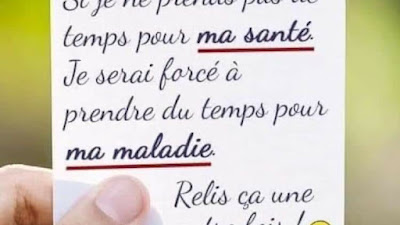 Si je ne prends pas de
temps pour ma santé.
Je serai forcé à
prendre du temps pour
ma maladie.
Relis ça une
autre fois !